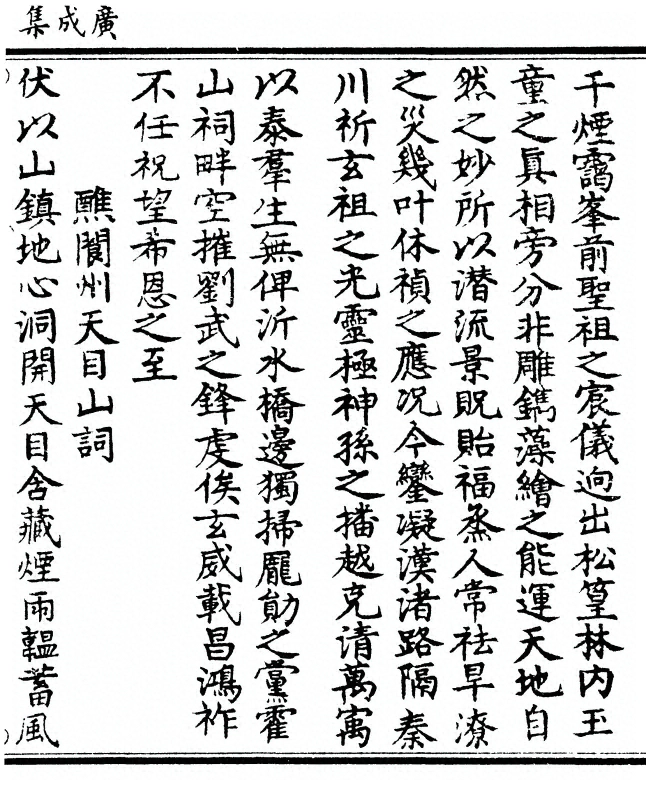 廣成集
千煙靄峯前聖祖之宸儀逈出松篁林内玉
童之眞相旁分非雕鐫藻繪之能運天地自
然之妙所以潛流景貺貽福烝人常祛旱潦
之災幾叶休禎之應况今鑾凝漢渚路隔秦
川祈玄祖之光靈極神孫之播越克清萬寓
以泰羣生無俾沂水橋邊獨掃龎勛之黨霍
山祠畔空摧劉武之鋒虔俟玄威載昌鴻祚
不任祝望希恩之至
醮閬州天目山詞
伏以山鎮地心洞開天目含藏煙雨韞蓄風